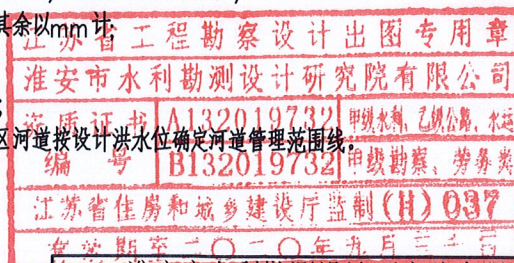 其余以mm计;
江苏省工程勘察设计出图专用章
淮安市水利勘测设计研究院有限公司
资质证书 A132019732 甲级水利、乙级公路、水运
区河道按设计洪水位确定河道管理范围线。
编号 B132019732 甲级勘察、劳务类
江苏省住房和城乡建设厅监制(H)037
有效期至二〇一〇年九月三十日